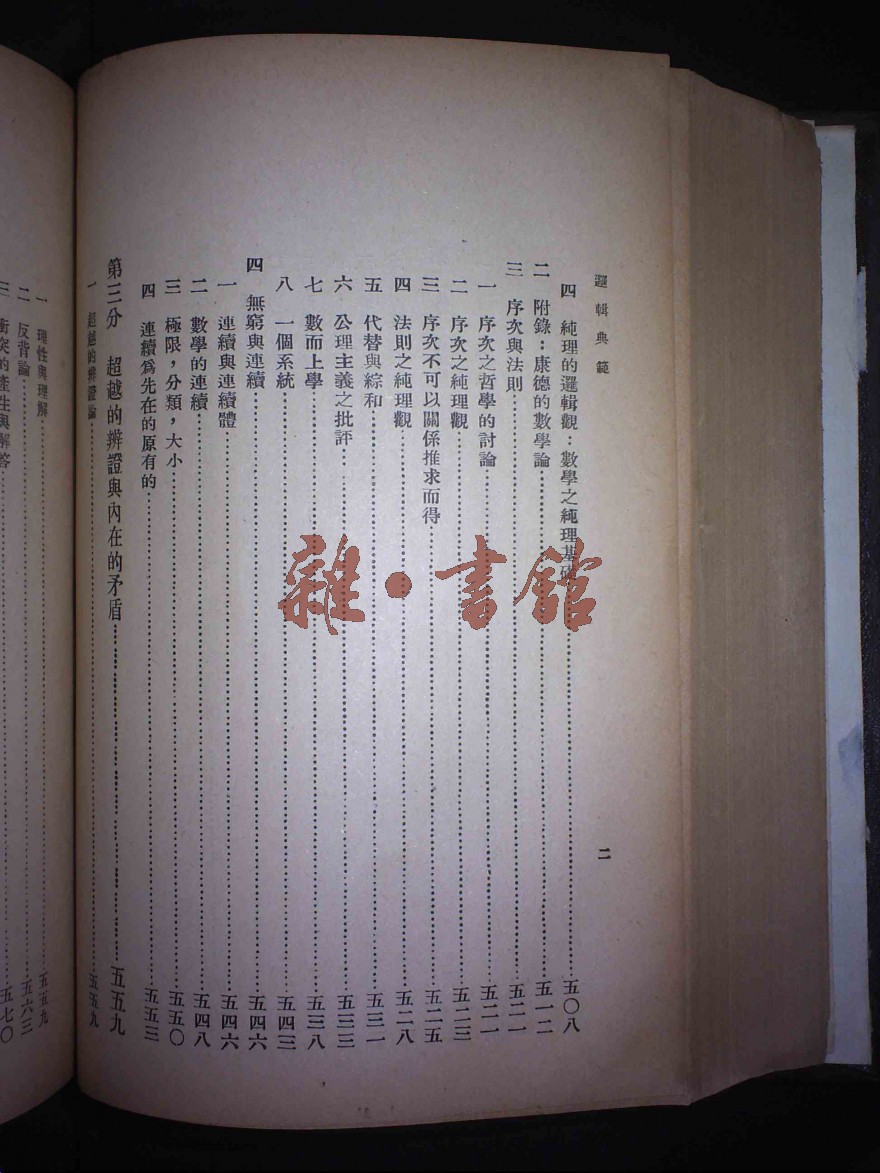 邏輯典範
二
四 純理的邏輯觀：數學之純理基礎……五〇八
二 附錄：康德的數學論……五一二
三 序次與法則……五二一
一 序次之哲學的討論……五二一
二 序次之純理觀……五二三
三 序次不可以關係推求而得……五二五
四 法則之純理觀……五二八
五 代替與綜和……五三一
六 公理主義之批評……五三三
七 數而上學……五三八
八 一個系統……五四三
四 無窮與連續……五四六
一 連續與連續體……五四六
二 數學的連續……五四八
三 極限，分類，大小……五五〇
四 連續爲先在的原有的……五五三
第三分 超越的辨證與內在的矛盾……五五九
一 超越的辨證論……五五九
一 理性與理解……五五九
二 反背論……五六三
三 衝突的產生與解答……五七〇
雜·書館